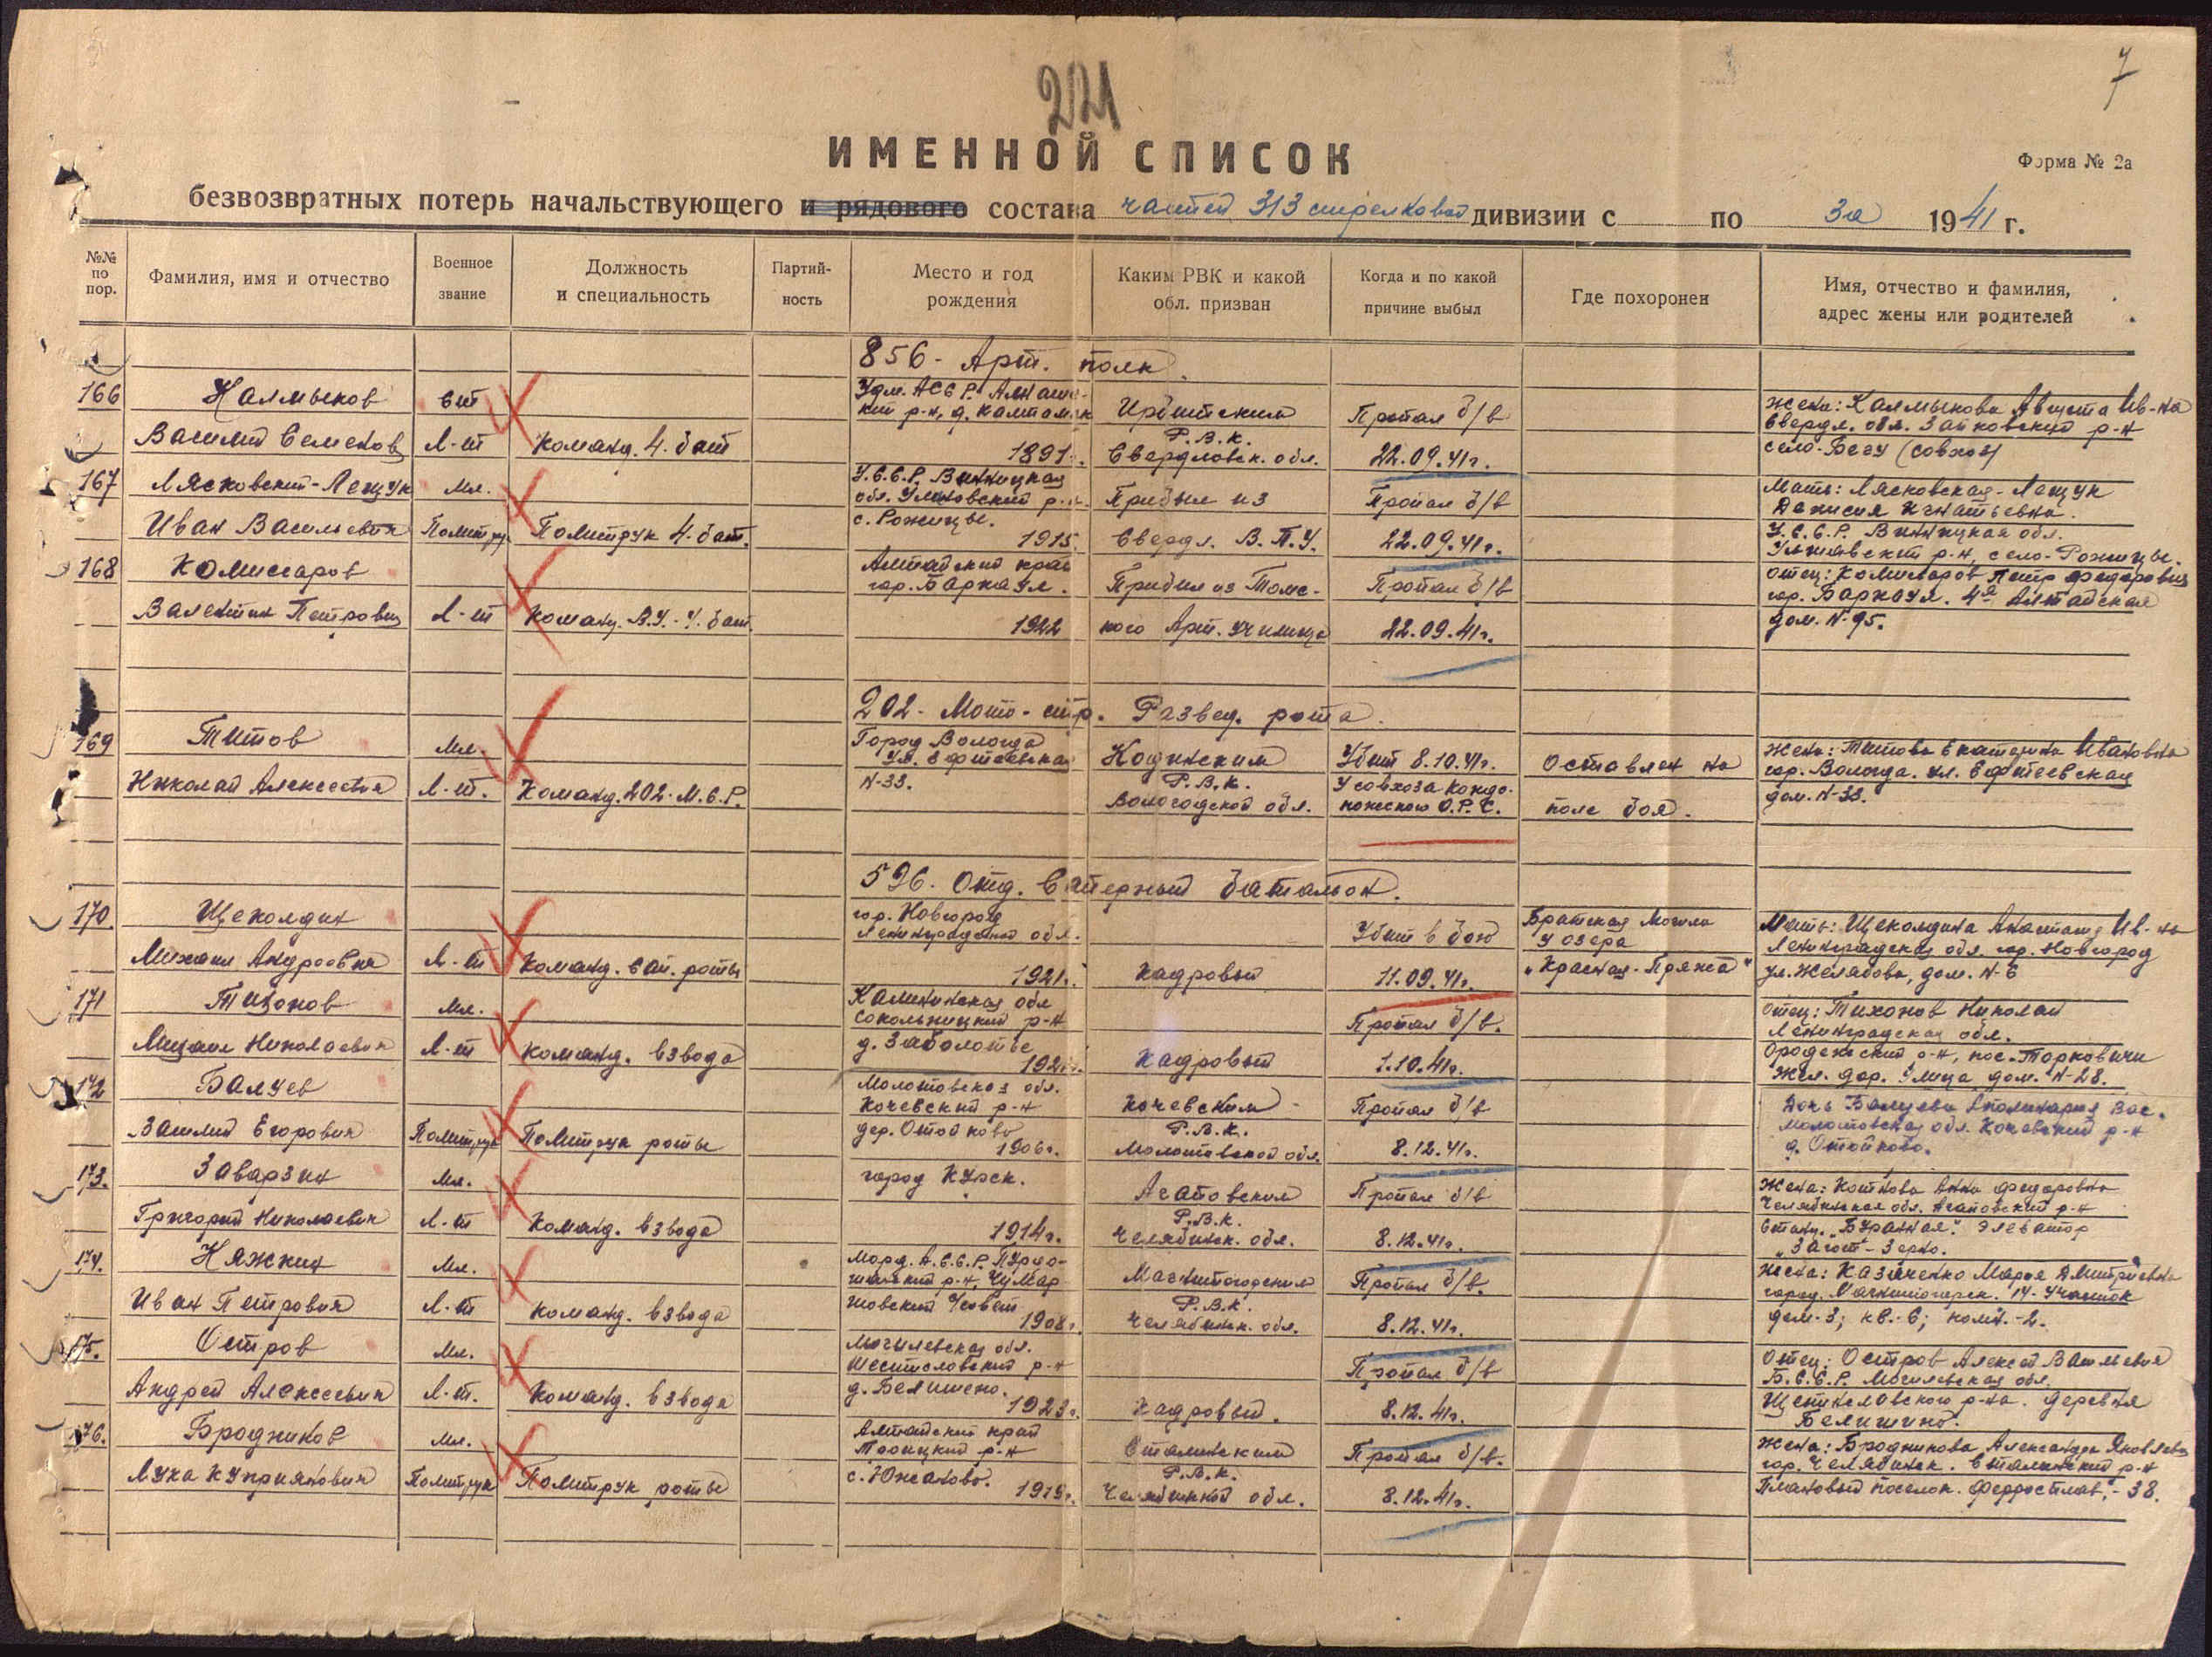 221
7
ИМЕННОЙ СПИСОК
Форма № 2а
безвозвратных потерь начальствующего и рядового состава частей 313 стрелковой дивизии с по За 1941 г.
№№ по пор.
Фамилия, имя и отчество
Военное звание
Должность и специальность
Партий-ность
Место и год рождения
Каким РВК и какой обл. призван
Когда и по какой причине выбыл
Где похоронен
Имя, отчество и фамилия, адрес жены или родителей
856 - Арт. полк
166
Калмыков
Василий Семенов
Ст
Л-т
Команд. 4. бат
Удм. АССР. Алнаш-
кий р-н, д.
1891г.
Ирбитским
Р.В.К.
Свердловск. обл.
Пропал б/в
22.09.41г.
Жена: Калмыкова Августа Ив-на
Свердл. обл. Зайковский р-н
село-Бегу (совхоз)
167
Лясковский-Лещук
Иван Васильевич
Мл.
Политрук
Политрук 4. бат.
У.С.С.Р. Винницкая
обл. Улановский р-н.
с. Рожицы.
1915
Прибыл из
Свердл. В.П.У.
Пропал б/в
22.09.41г.
Мать: Лясковская-Лещук
Игнатьевна.
У.С.С.Р. Винницкая обл.
Улановский р-н, село-Рожицы.
168
Комиссаров
Валентин Петрович
Л-т
Команд. В.У.-4. бат.
Алтайский край
гор. Барнаул.
1922
Прибыл из Томс-
кого Арт. училища
Пропал б/в
22.09.41г.
Отец: Комиссаров Петр Федорович
гор. Барнаул. 4я Алтайская
дом. N-95.
202 - Мото-стр. Развед. рота.
169
Титов
Николай Алексеевич
Мл.
Л-т.
Команд. 202. М.С.Р.
Город Вологда
Ул.
N-33.
Р.В.К.
Вологодской обл.
Убит 8.10.41г.
У совхоза Кондо-
пожского О.Р.С.
Оставлен на
поле боя.
Жена: Титова Екатерина Ивановна
гор. Вологда. ул.
дом. N-33.
596. Отд. Саперный батальон.
170.
Щеколдин
Михаил Андреевич
Л-т
Команд. сап. роты
гор. Новгород
Ленинградской обл.
1921г.
Кадровый
Убит в бою
11.09.41г.
Братская Могила
У озера
"Красная-Пряжа"
Мать: Щеколдина Ив-на
Ленинградская обл. гор. Новгород
ул. Желябова, дом. N-6
171
Тихонов
Михаил Николаевич
Мл.
Л-т
Команд. взвода
Калининская обл
Сокольницкий р-н
д. Заболотье
Кадровый
Пропал б/в.
1.10.41г.
Отец: Тихонов Николай
Ленинградская обл.
Оредежский р-н, пос. Торковичи
Жел. дор. Улица дом. N-28.
172
Балуев
Василий Егорович
Политрук
Политрук роты
Молотовская обл.
Кочевский р-н
дер. Отопково
1906г.
Кочевским
Р.В.К.
Молотовской обл.
Пропал б/в
8.12.41г.
Дочь Балуева Апполинария Вас.
Молотовская обл. Кочевский р-н
д. Отопково.
173.
Заварзин
Григорий Николаевич
Мл.
Л-т
Команд. взвода
город Курск.
1914г.
Агаповским
Р.В.К.
Челябинск. обл.
Пропал б/в
8.12.41г.
Жена: Коткова Анна Федоровна
Челябинская обл. Агаповский р-н
Станц. "Буранная". Элеватор
"Загот"-Зерно.
174.
Няжкин
Иван Петрович
Мл.
Л-т
Команд. взвода
Морд. А.С.С.Р.
1908г.
Магнитогорским
Р.В.К.
Челябинск. обл.
Пропал б/в.
8.12.41г.
Жена: Казаченко Мария Дмитриевна
город. Магнитогорск. 14-Участок
дом-3; кв.-6; комн.-2.
175.
Остров
Андрей Алексеевич
Мл.
Л-т.
Команд. взвода
Могилевская обл.
р-н
1923г.
Кадровый.
Пропал б/в
8.12.41г.
Отец: Остров Алексей Васильевич
Б.С.С.Р. Могилевская обл.
р-на. деревня
Белишино.
176.
Бродников
Лука Куприянович
Мл.
Политрук
Политрук роты
Алтайский край
Троицкий р-н
с. Южаково.
1919г.
Сталинским
Р.В.К.
Челябинской обл.
Пропал б/в.
8.12.41г.
Жена: Бродникова Александра Яковлевна
гор. Челябинск. Сталинский р-н
Плановый поселок. Ферросплав.-38.